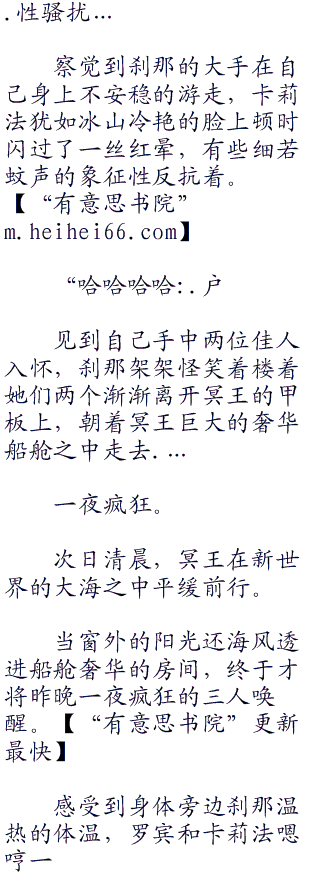 .性骚扰...
察觉到刹那的大手在自
己身上不安稳的游走，卡莉
法犹如冰山冷艳的脸上顿时
闪过了一丝红晕，有些细若
蚊声的象征性反抗着。
【“有意思书院”
m.heihei66.com】
“哈哈哈哈:.户
见到自己手中两位佳人
入怀，刹那架架怪笑着楼着
她们两个渐渐离开冥王的甲
板上，朝着冥王巨大的奢华
船舱之中走去....
一夜疯狂。
次日清晨，冥王在新世
界的大海之中平缓前行。
当窗外的阳光还海风透
进船舱奢华的房间，终于才
将昨晚一夜疯狂的三人唤
醒。【“有意思书院”更新
最快】
感受到身体旁边刹那温
热的体温，罗宾和卡莉法嗯
哼一